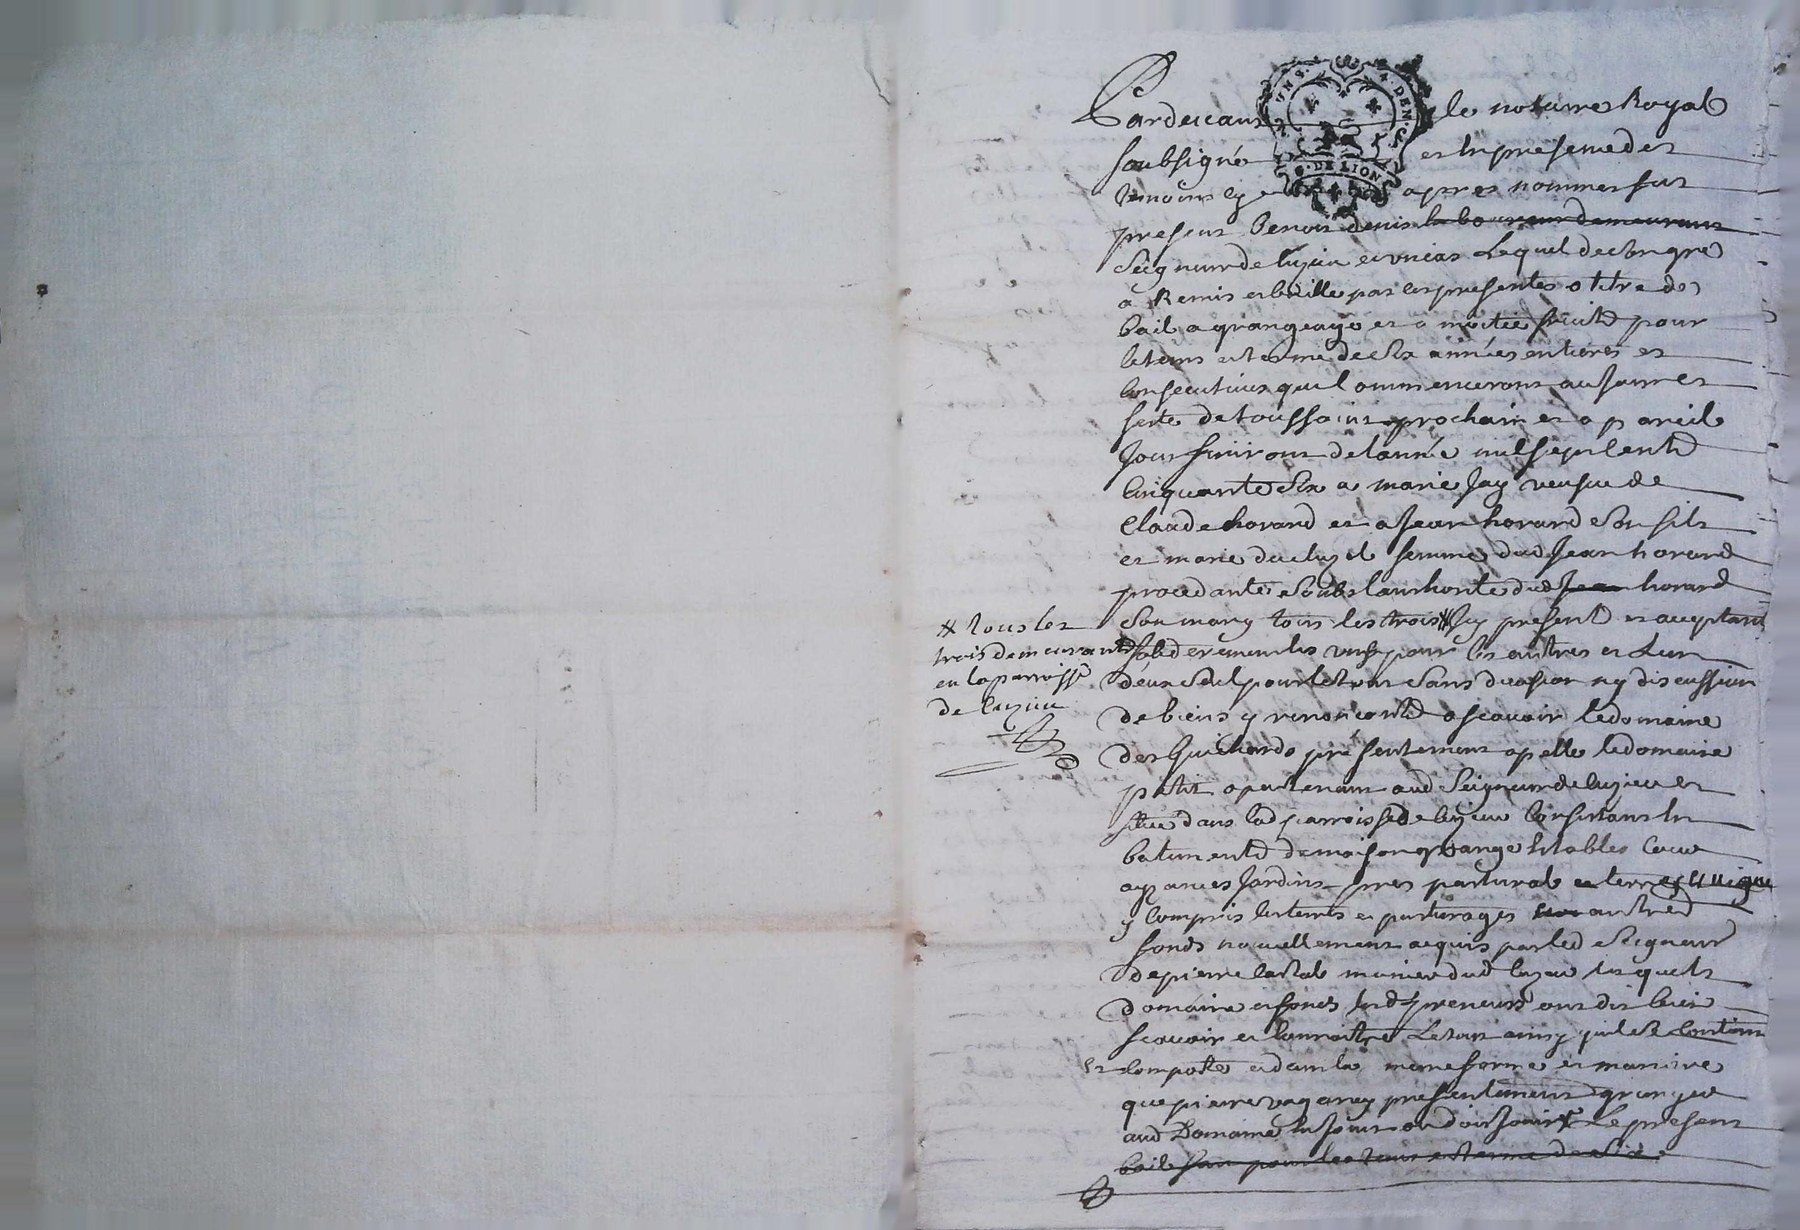 Pardevant le notaire Royal
soubsigné et en presence des
temoins cy apres nommes fut
present Benoit denis laboureur demeurant
Seigneur de luzieu et unias Lequel de son gré
a Remis et baille par ces presentes a titre de
bail a grangeage et a moitié fruitd pour
le tems et terme de Six années entieres et
consecutives qui Commenceront au Jour et
feste de toussaint prochain et a pareil
Jour finiront de lannée mil sept Centd
Cinquante Six a marie Jay veufue de
Claude horand et a Jean horand Son fils
et marie du femme dud Jean horand
procedante Soubs lauthorité dud Jean horand
Son mary tous les trois * Icy present et acceptant
* tous les
trois demeurantd
en la parroisse
de luzieu
soliderement les uns pour les autres et Lun
deux Seul pour le tout Sans division ny discussion
de biens y renoncantd a scavoir le domaine
des Guichards présentement apelle le domaine
petit apartenant aud Seigneur de luzieu et
situe dans lad parroisse de luzieu Consistant en
batimentd de maison grange Estables Cour
ayzances Jardins pres pasturab et terres et vigne
y Compris les terres et pasturages autred
fonds nouvellement acquis par led Seigneur
de pierre munier dud luzieu les quels
domaine et fonds lesd preneurs ont dit bien
scavoir et Connoitre Le tout ainsy quil se Contient
et Comporte et dans la meme forme et maniere
que pierre presentement granger
aud Domaine en Jouit ou doit Jouir * Le present
bail fait pour le tems et terme de Six